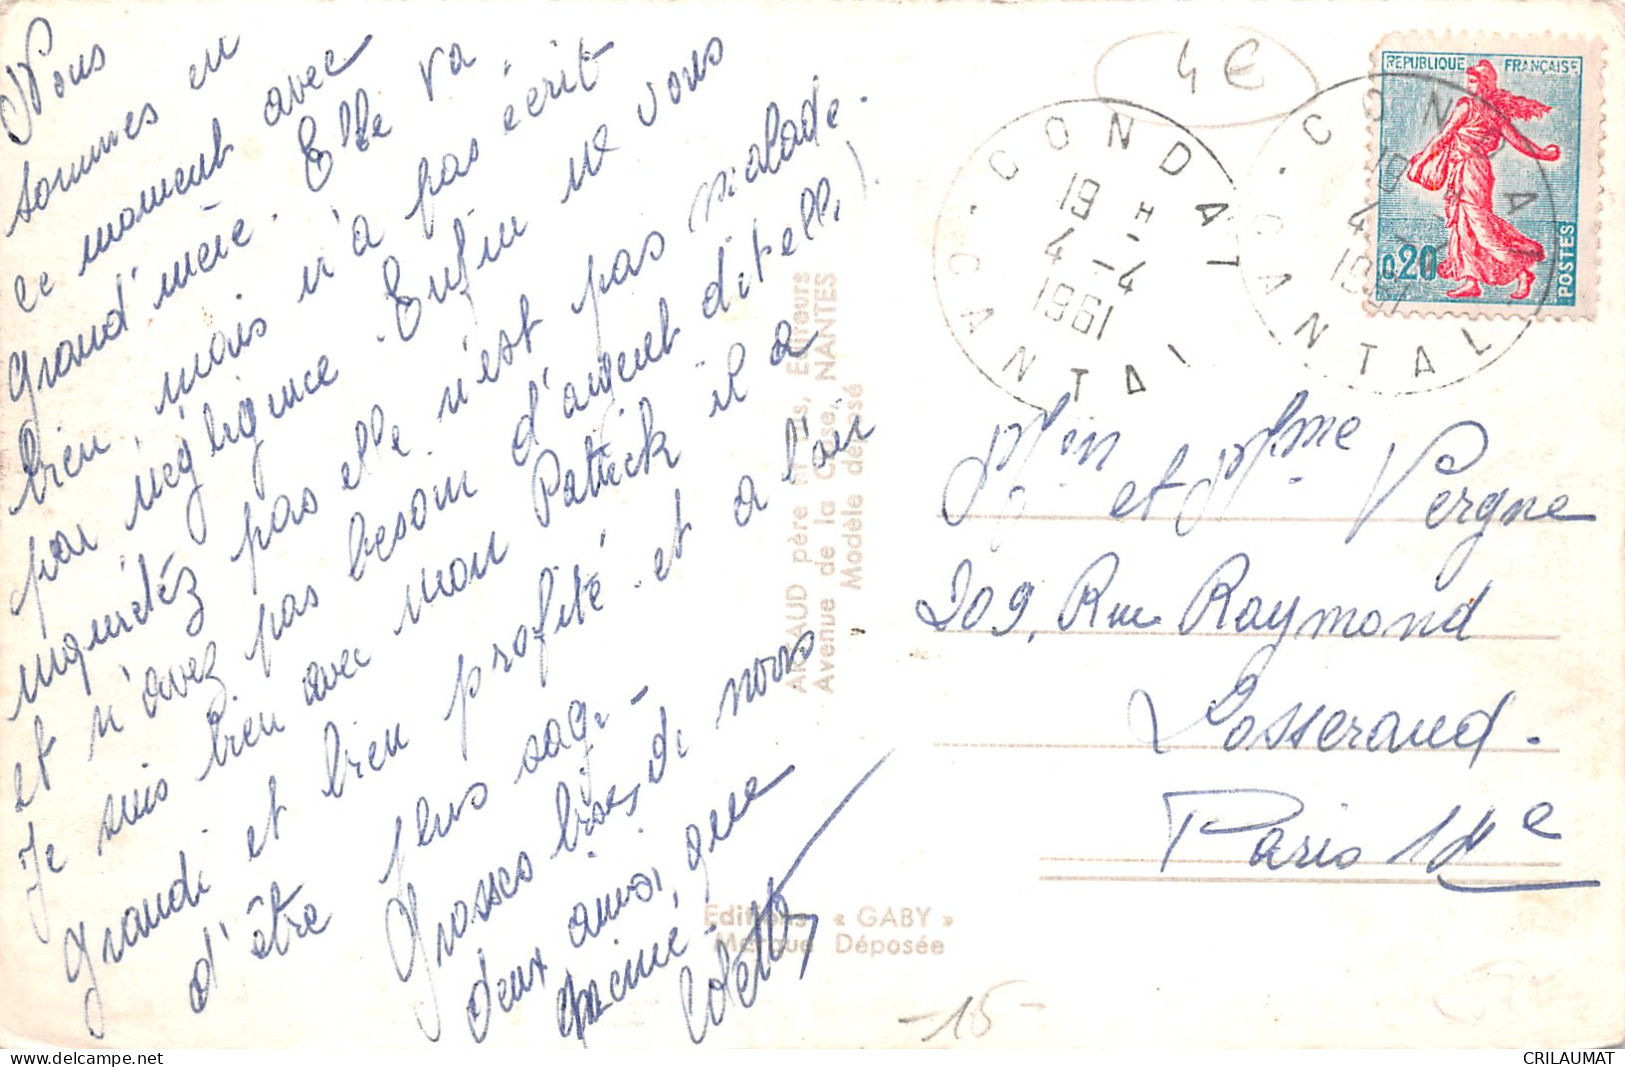 Nous
sommes en
ce moment avec
grand'mère. Elle va
bien, mais n'a pas écrit
par négligence. Enfin ne vous
inquiétéz pas elle n'est pas malade.
et n'avez pas besoin d'argent dit elle).
Je suis bien avec mon Patrick il a
grandi et bien profité et a l'air
d'être plus sage-
Grosses bises de nous
deux ainsi que
mémé-
Colette
ARTAUD père et fils, Editeurs
Avenue de la Close, NANTES
Modèle déposé
Editions « GABY »
Marque Déposée
4 €
CONDAT
19 H
4 -4
1961
CANTAL
CONDAT
19 H
4 -4
1961
CANTAL
REPUBLIQUE FRANÇAISE
0,20
POSTES
et Mme Vergne
209, Rue Raymond
Losserand.
Paris 14e
-15-
delcampe.net
CRILAUMAT